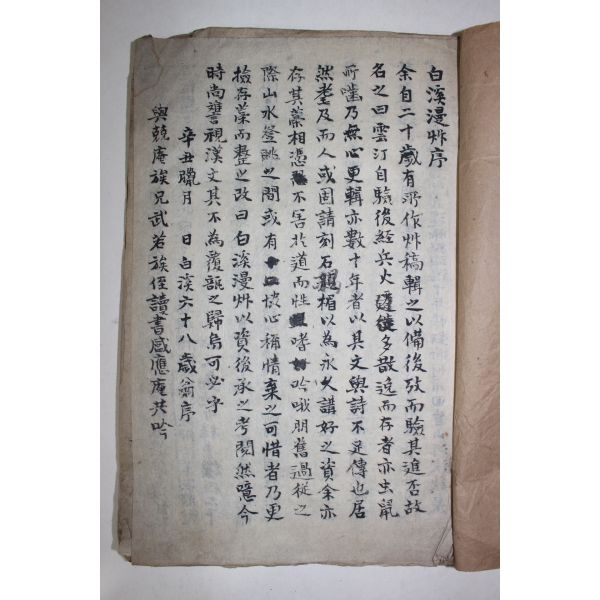 白溪漫艸序
余自二十歲有所作艸稿輯之以備後攷而驗其進否故
名之曰雲汀自驗後經兵火遷徙多散逸而存者亦虫鼠
所囓乃無心更輯亦數十年者以其文與詩不足傳也居
然耋及而人或固請刻石楣以為永久講好之資余亦
存其藁相憑不害於道而性嗜吟哦朋舊過從之
際山水登眺之間或有快心稱情棄之可惜者乃更
撿存藁而整之改曰白溪漫艸以資後承之考閱然噫今
時尚讐視漢文其不為覆瓿之歸烏可必乎
辛丑臘月 日白溪六十八歲翁序
與兢庵族兄武若族侄讀書感應庵共吟